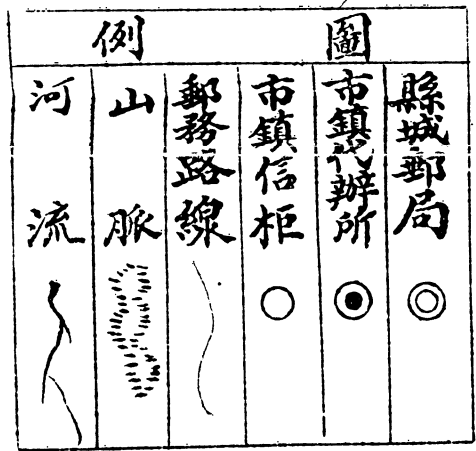 圖例
縣城郵局
市鎮代辦所
市鎮信柜
郵務路線
山脈
河流